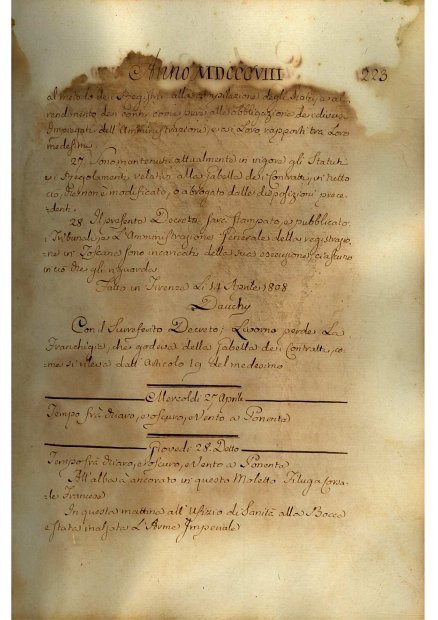 Anno MDCCCVIII 223
al metodo dei Registri alla compilazione degli Stati, e al
rendimento dei conti come pure alle obbligazione dei diversi
Impiegati dell'Amministrazione, e ai Loro rapporti tra Loro
medesimi.
27. Sono mantenuti attualmente in vigore gli Statuti
e i Regolamenti relativi alla Gabella dei Contratti, in tutto
ciò che non è modificato, o abrogato dalle disposizioni prece-
denti.
28. Il presente Decreto sarà stampato, e pubblicato
Tribunali, e L'Amministrazione Generale della registrazio-
ne in Toscana sono incaricati della sua esecuzione ciascuno
in ciò che gli riguarda
Fatto in Firenze Li 14 Aprile 1808
Dauchy
Con il Surreferito Decreto; Livorno perde La
Franchigia, che godeva della Gabella dei Contratti, co-
me si rileva dall'Articolo 19 del medesimo
Mercoldì 27 Aprile
Tempo frà chiaro, e oscuro, e Vento a Ponente
Giovedì 28 Detto
Tempo frà chiaro, e oscuro, e Vento a Ponente
All'alba è ancorato in questo Moletto Filuga Corsa-
le Francese
In questa mattina all'Ufizio di Sanità alla Bocca
è stata inalzata L'Arme Imperiale